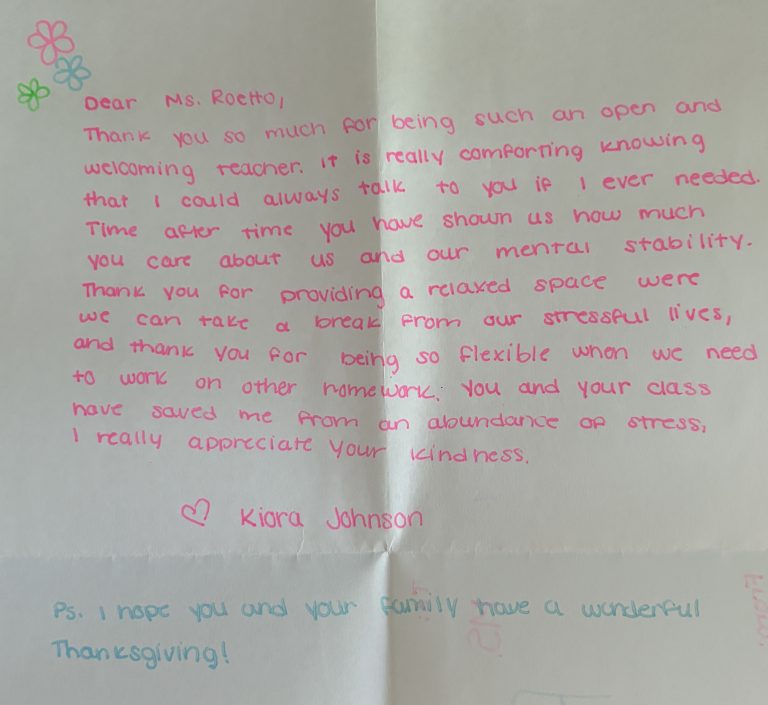 Dear Ms. Roetto,
Thank you so much for being such an open and
welcoming teacher. It is really comforting knowing
that I could always talk to you if I ever needed.
Time after time you have shown us how much
you care about us and our mental stability.
Thank you for providing a relaxed space were
we can take a break from our stressful lives,
and thank you for being so flexible when we need
to work on other homework. You and your class
have saved me from an abundance of stress,
I really appreciate your kindness.
Kiara Johnson
Ps. I hope you and your family have a wonderful
Thanksgiving!